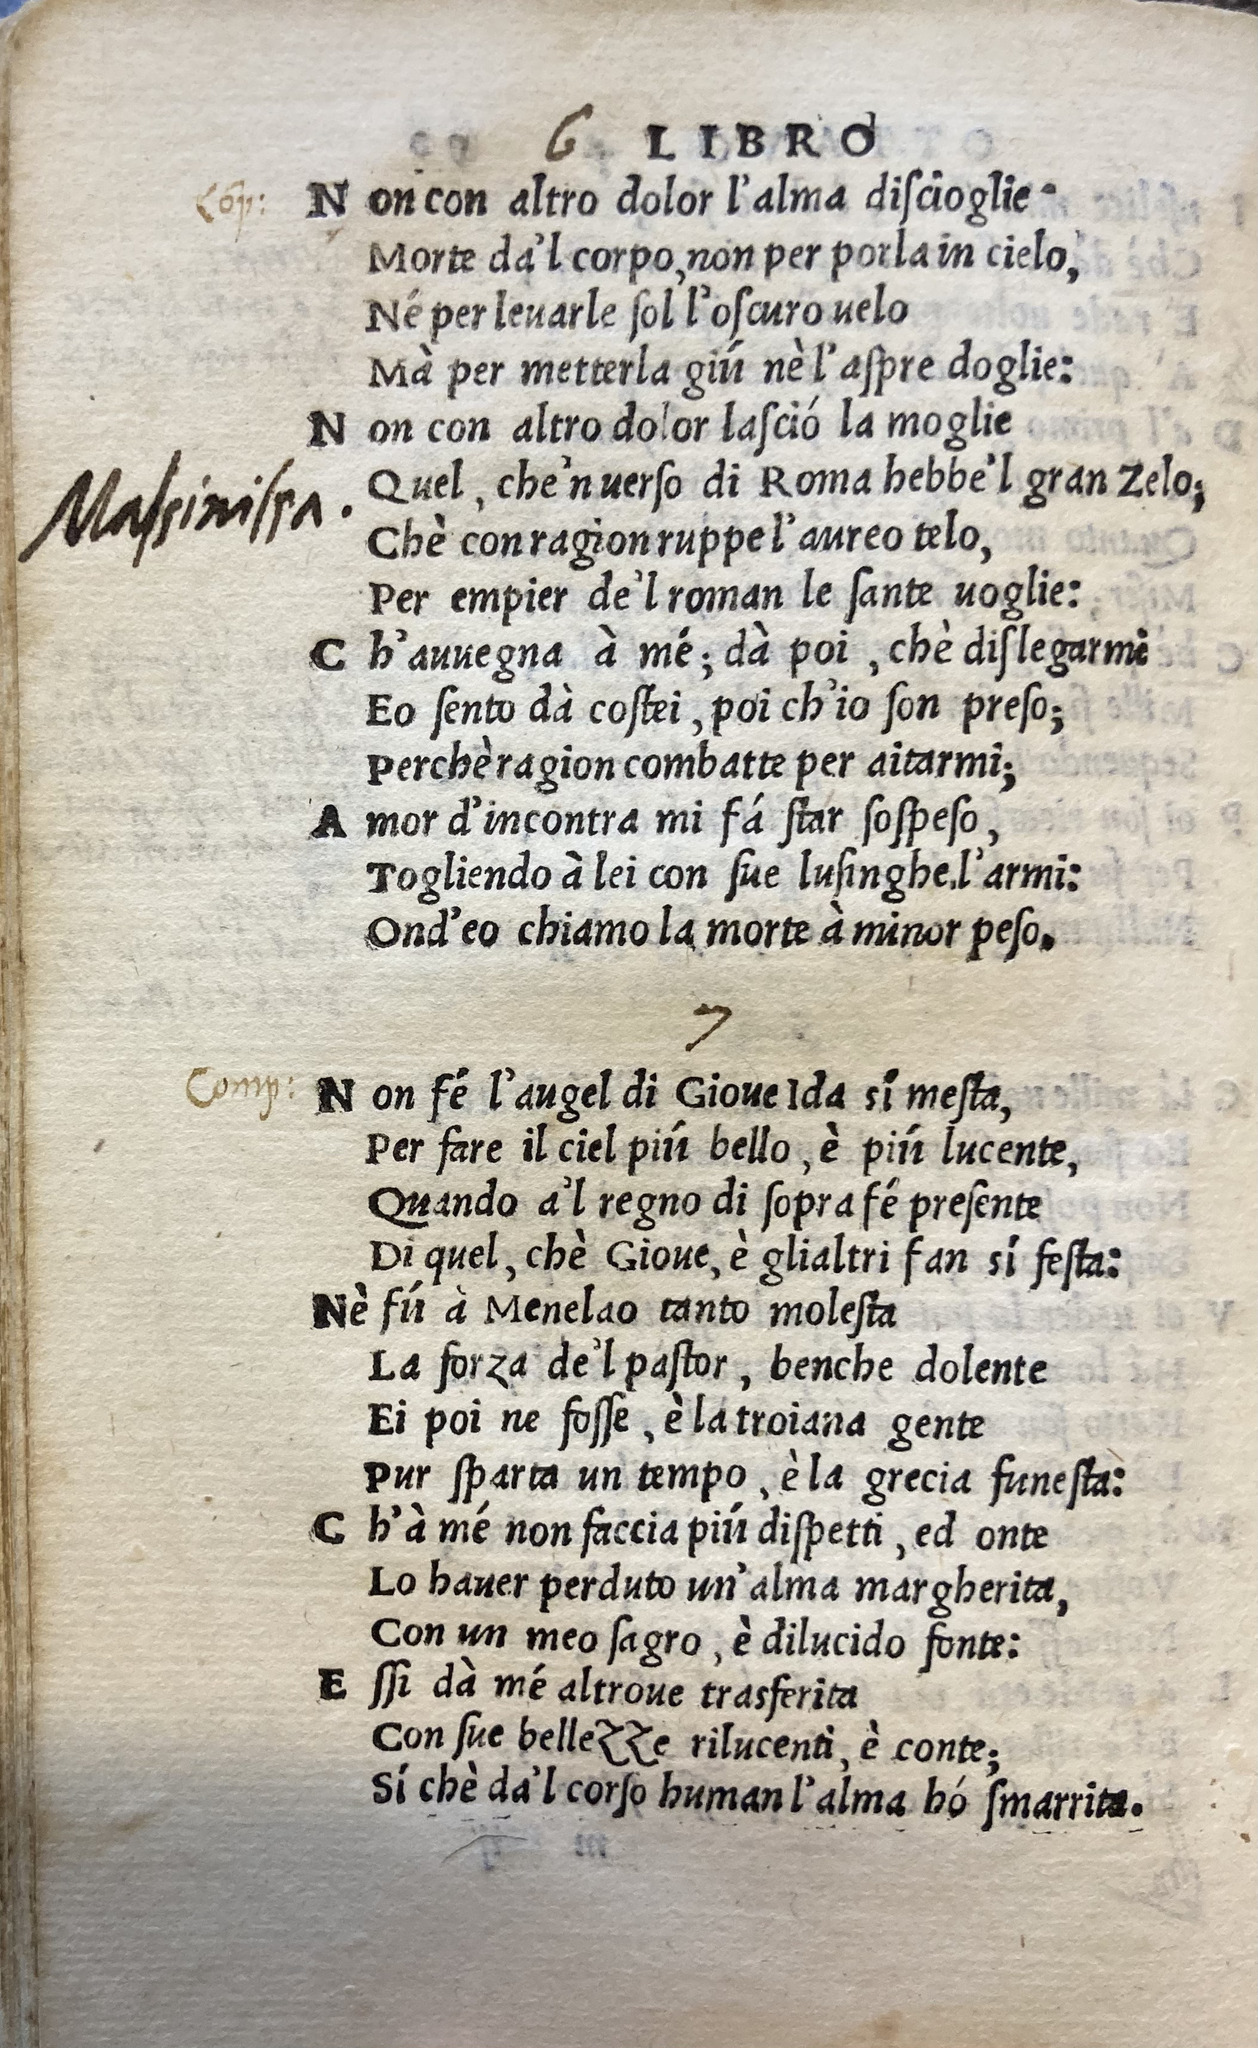 6 LIBRO
Cõp: Non con altro dolor l'alma diſcioglie
Morte da'l corpo, non per porla in cielo,
Né per leuarle ſol l'oſcuro uelo
Mà per metterla giú nè l'aſpre doglie:
Non con altro dolor laſció la moglie
Quel, che'n uerſo di Roma hebbe'l gran Zelo;
Maſsiniſsa.
Chè con ragion ruppe l'aureo telo,
Per empier de'l roman le ſante uoglie:
Ch'auuegna à mé; dà poi, chè diſlegarmi
Eo ſento dà coſtei, poi ch'io ſon preſo;
Perchè ragion combatte per aitarmi;
Amor d'incontra mi fá ſtar ſoſpeſo,
Togliendo à lei con ſue luſinghe l'armi:
Ond'eo chiamo la morte à minor peſo.
7
Comp: Non fé l'augel di Gioue Ida sí meſta,
Per fare il ciel piú bello, è piú lucente,
Quando a'l regno di ſopra fé preſente
Di quel, chè Gioue, è glialtri fan sí feſta:
Nè fú à Menelao tanto moleſta
La forza de'l paſtor, benche dolente
Ei poi ne foſſe, è la troiana gente
Pur ſparta un tempo, è la grecia funeſta:
Ch'à mé non faccia piú diſpetti, ed onte
Lo hauer perduto un'alma margherita,
Con un meo ſagro, è dilucido fonte:
Eſſi dà mé altroue trasferita
Con ſue bellezze rilucenti, è conte;
Sí chè da'l corſo human l'alma hó ſmarrita.